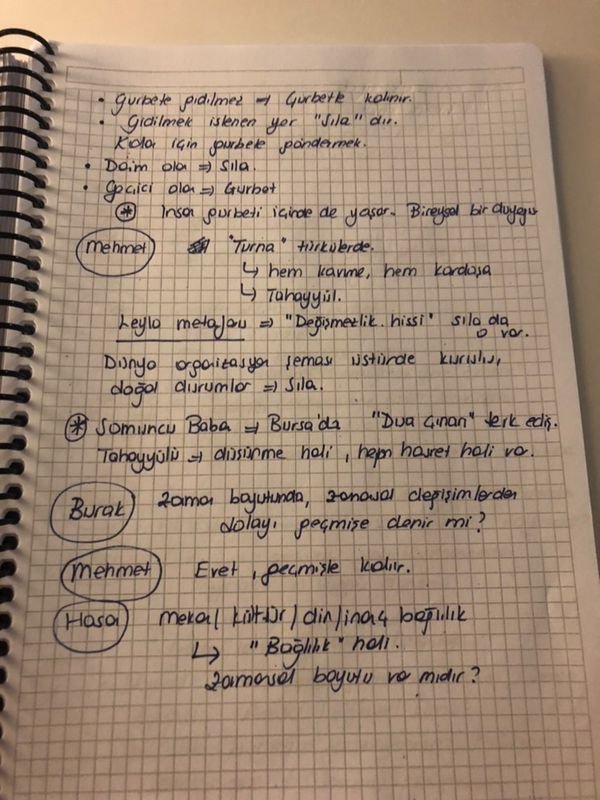 • Gurbete gidilmez => Gurbette kalınır.
• Gidilmek istenen yer "Sıla" dır.
Kızlar için gurbete göndermek.
• Daim olan => Sıla.
• Geçici olan => Gurbet
* İnsan gurbeti içinde de yaşar. Bireysel bir duygu
Mehmet "Turna" türkülerde.
↳ hem karıma, hem kardaşa
↳ Tahayyül.
Leyla metaforu => "Değişmezlik hissi" sıla da
o var.
Dünya organizasyon şeması üstünde kurulu,
doğal durumlar => Sıla.
* Somuncu Baba => Bursa'da "Dua Çınarı" terk ediş.
Tahayyülü => düşünme hali, hem hasret hali var.
Burak zaman boyutunda, zamansal değişimlerden
dolayı geçmişe denir mi?
Mehmet Evet, geçmişte kalır.
Hasan mekan / kültür / din / inanç bağlılık
↳ "Bağlılık" hali.
zamansal boyutu var mıdır?